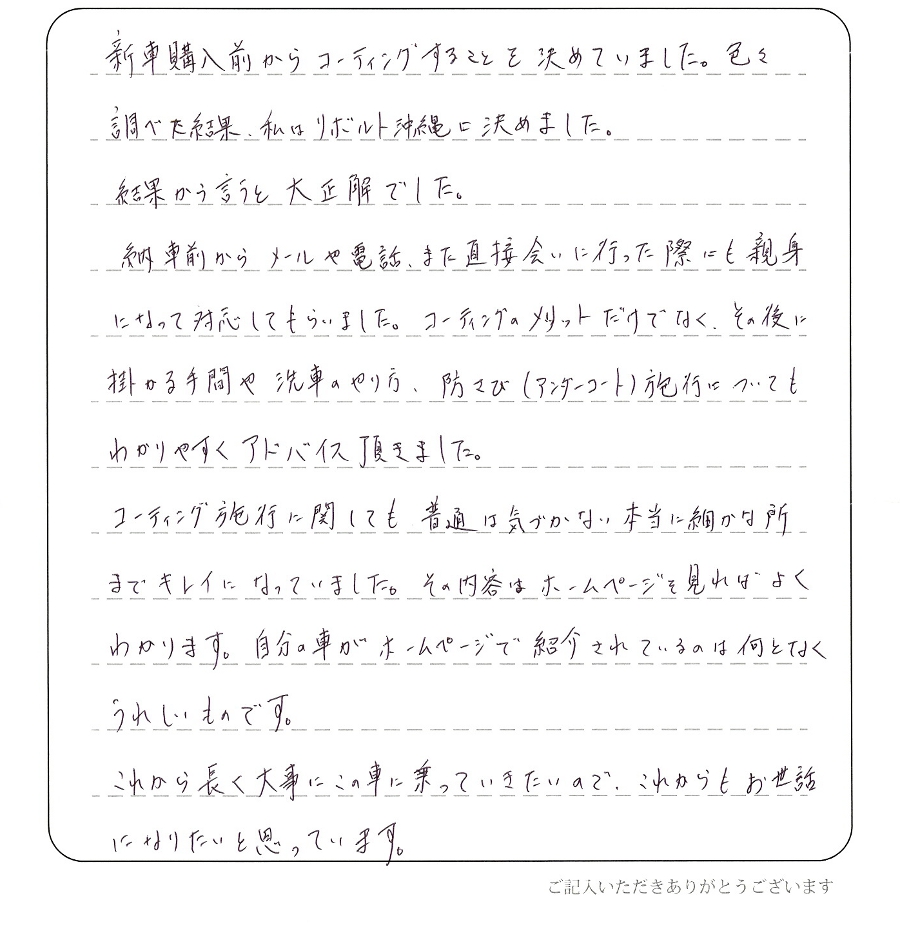 新車購入前からコーティングすることを決めていました。色々
調べた結果、私はリボルト沖縄に決めました。
結果から言うと大正解でした。
納車前からメールや電話、また直接会いに行った際にも親身
になって対応してもらいました。コーティングのメリットだけでなく、その後に
掛かる手間や洗車のやり方、防さび(アンダーコート)施行についても
わかりやすくアドバイス頂きました。
コーティング施行に関しても普通は気づかない本当に細かな所
までキレイになっていました。その内容はホームページを見ればよく
わかります。自分の車がホームページで紹介されているのは何となく
うれしいものです。
これから長く大事にこの車に乗っていきたいので、これからもお世話
になりたいと思っています。
ご記入いただきありがとうございます